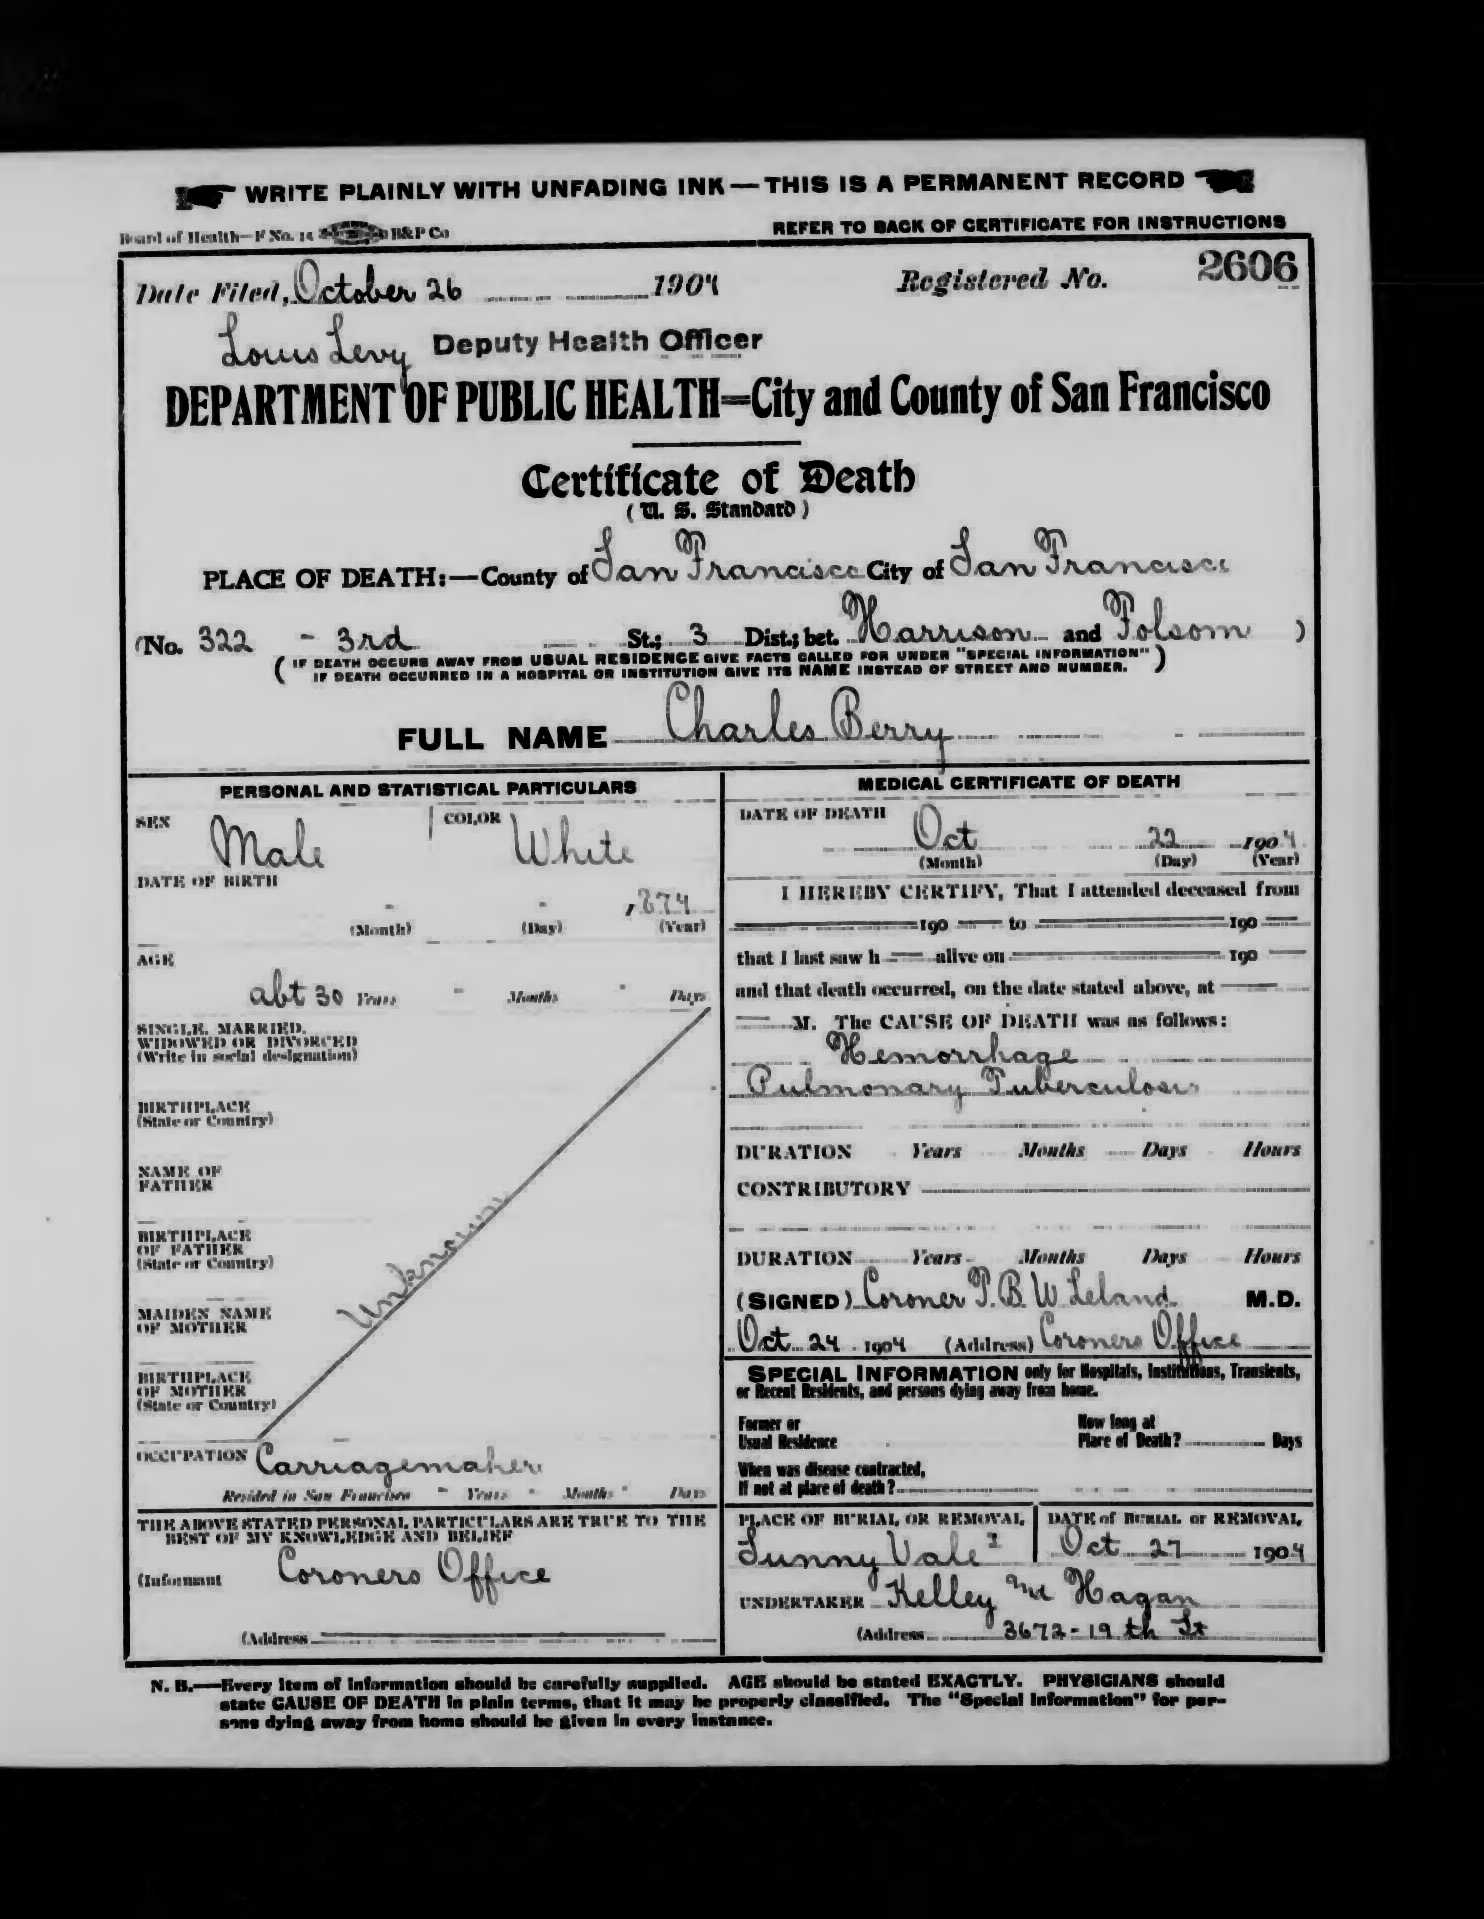 WRITE PLAINLY WITH UNFADING INK—THIS IS A PERMANENT RECORD
Board of Health—F No. 14 B&P Co
REFER TO BACK OF CERTIFICATE FOR INSTRUCTIONS
Date Filed, October 26 1904 Registered No. 2606
Louis Levy Deputy Health Officer
DEPARTMENT OF PUBLIC HEALTH=City and County of San Francisco
Certificate of Death
(U. S. Standard)
PLACE OF DEATH:—County of San Francisco City of San Francisco
(No. 322 - 3rd St.; 3 Dist.; bet. Harrison and Folsom )
( IF DEATH OCCURS AWAY FROM USUAL RESIDENCE GIVE FACTS CALLED FOR UNDER "SPECIAL INFORMATION" )
IF DEATH OCCURRED IN A HOSPITAL OR INSTITUTION GIVE ITS NAME INSTEAD OF STREET AND NUMBER.
FULL NAME Charles Berry
PERSONAL AND STATISTICAL PARTICULARS
SEX Male COLOR White
DATE OF BIRTH
- - ,874
(Month) (Day) (Year)
AGE
abt 30 Years - Months - Days
SINGLE, MARRIED,
WIDOWED OR DIVORCED
(Write in social designation)
BIRTHPLACE
(State or Country)
NAME OF
FATHER
BIRTHPLACE
OF FATHER
(State or Country)
Unknown
MAIDEN NAME
OF MOTHER
BIRTHPLACE
OF MOTHER
(State or Country)
OCCUPATION Carriagemaker
Resided in San Francisco - Years - Months - Days
THE ABOVE STATED PERSONAL PARTICULARS ARE TRUE TO THE
BEST OF MY KNOWLEDGE AND BELIEF
(Informant Coroners Office
(Address
MEDICAL CERTIFICATE OF DEATH
DATE OF DEATH
Oct 22 1904
(Month) (Day) (Year)
I HEREBY CERTIFY, That I attended deceased from
190 to 190
that I last saw h alive on 190
and that death occurred, on the date stated above, at
M. The CAUSE OF DEATH was as follows:
Hemorrhage
Pulmonary Tuberculosis
DURATION Years Months Days Hours
CONTRIBUTORY
DURATION Years Months Days Hours
(SIGNED) Coroner T. B. W. Leland M.D.
Oct 24 1904 (Address) Coroners Office
SPECIAL INFORMATION only for Hospitals, Institutions, Transients,
or Recent Residents, and persons dying away from home.
Former or
Usual Residence
How long at
Place of Death? Days
When was disease contracted,
If not at place of death?
PLACE OF BURIAL OR REMOVAL
Sunny Vale
DATE of BURIAL or REMOVAL
Oct 27 1904
UNDERTAKER Kelley Mc Hagan
(Address 3672-19th St
N. B.—Every item of information should be carefully supplied. AGE should be stated EXACTLY. PHYSICIANS should
state CAUSE OF DEATH in plain terms, that it may be properly classified. The "Special Information" for per-
sons dying away from home should be given in every instance.